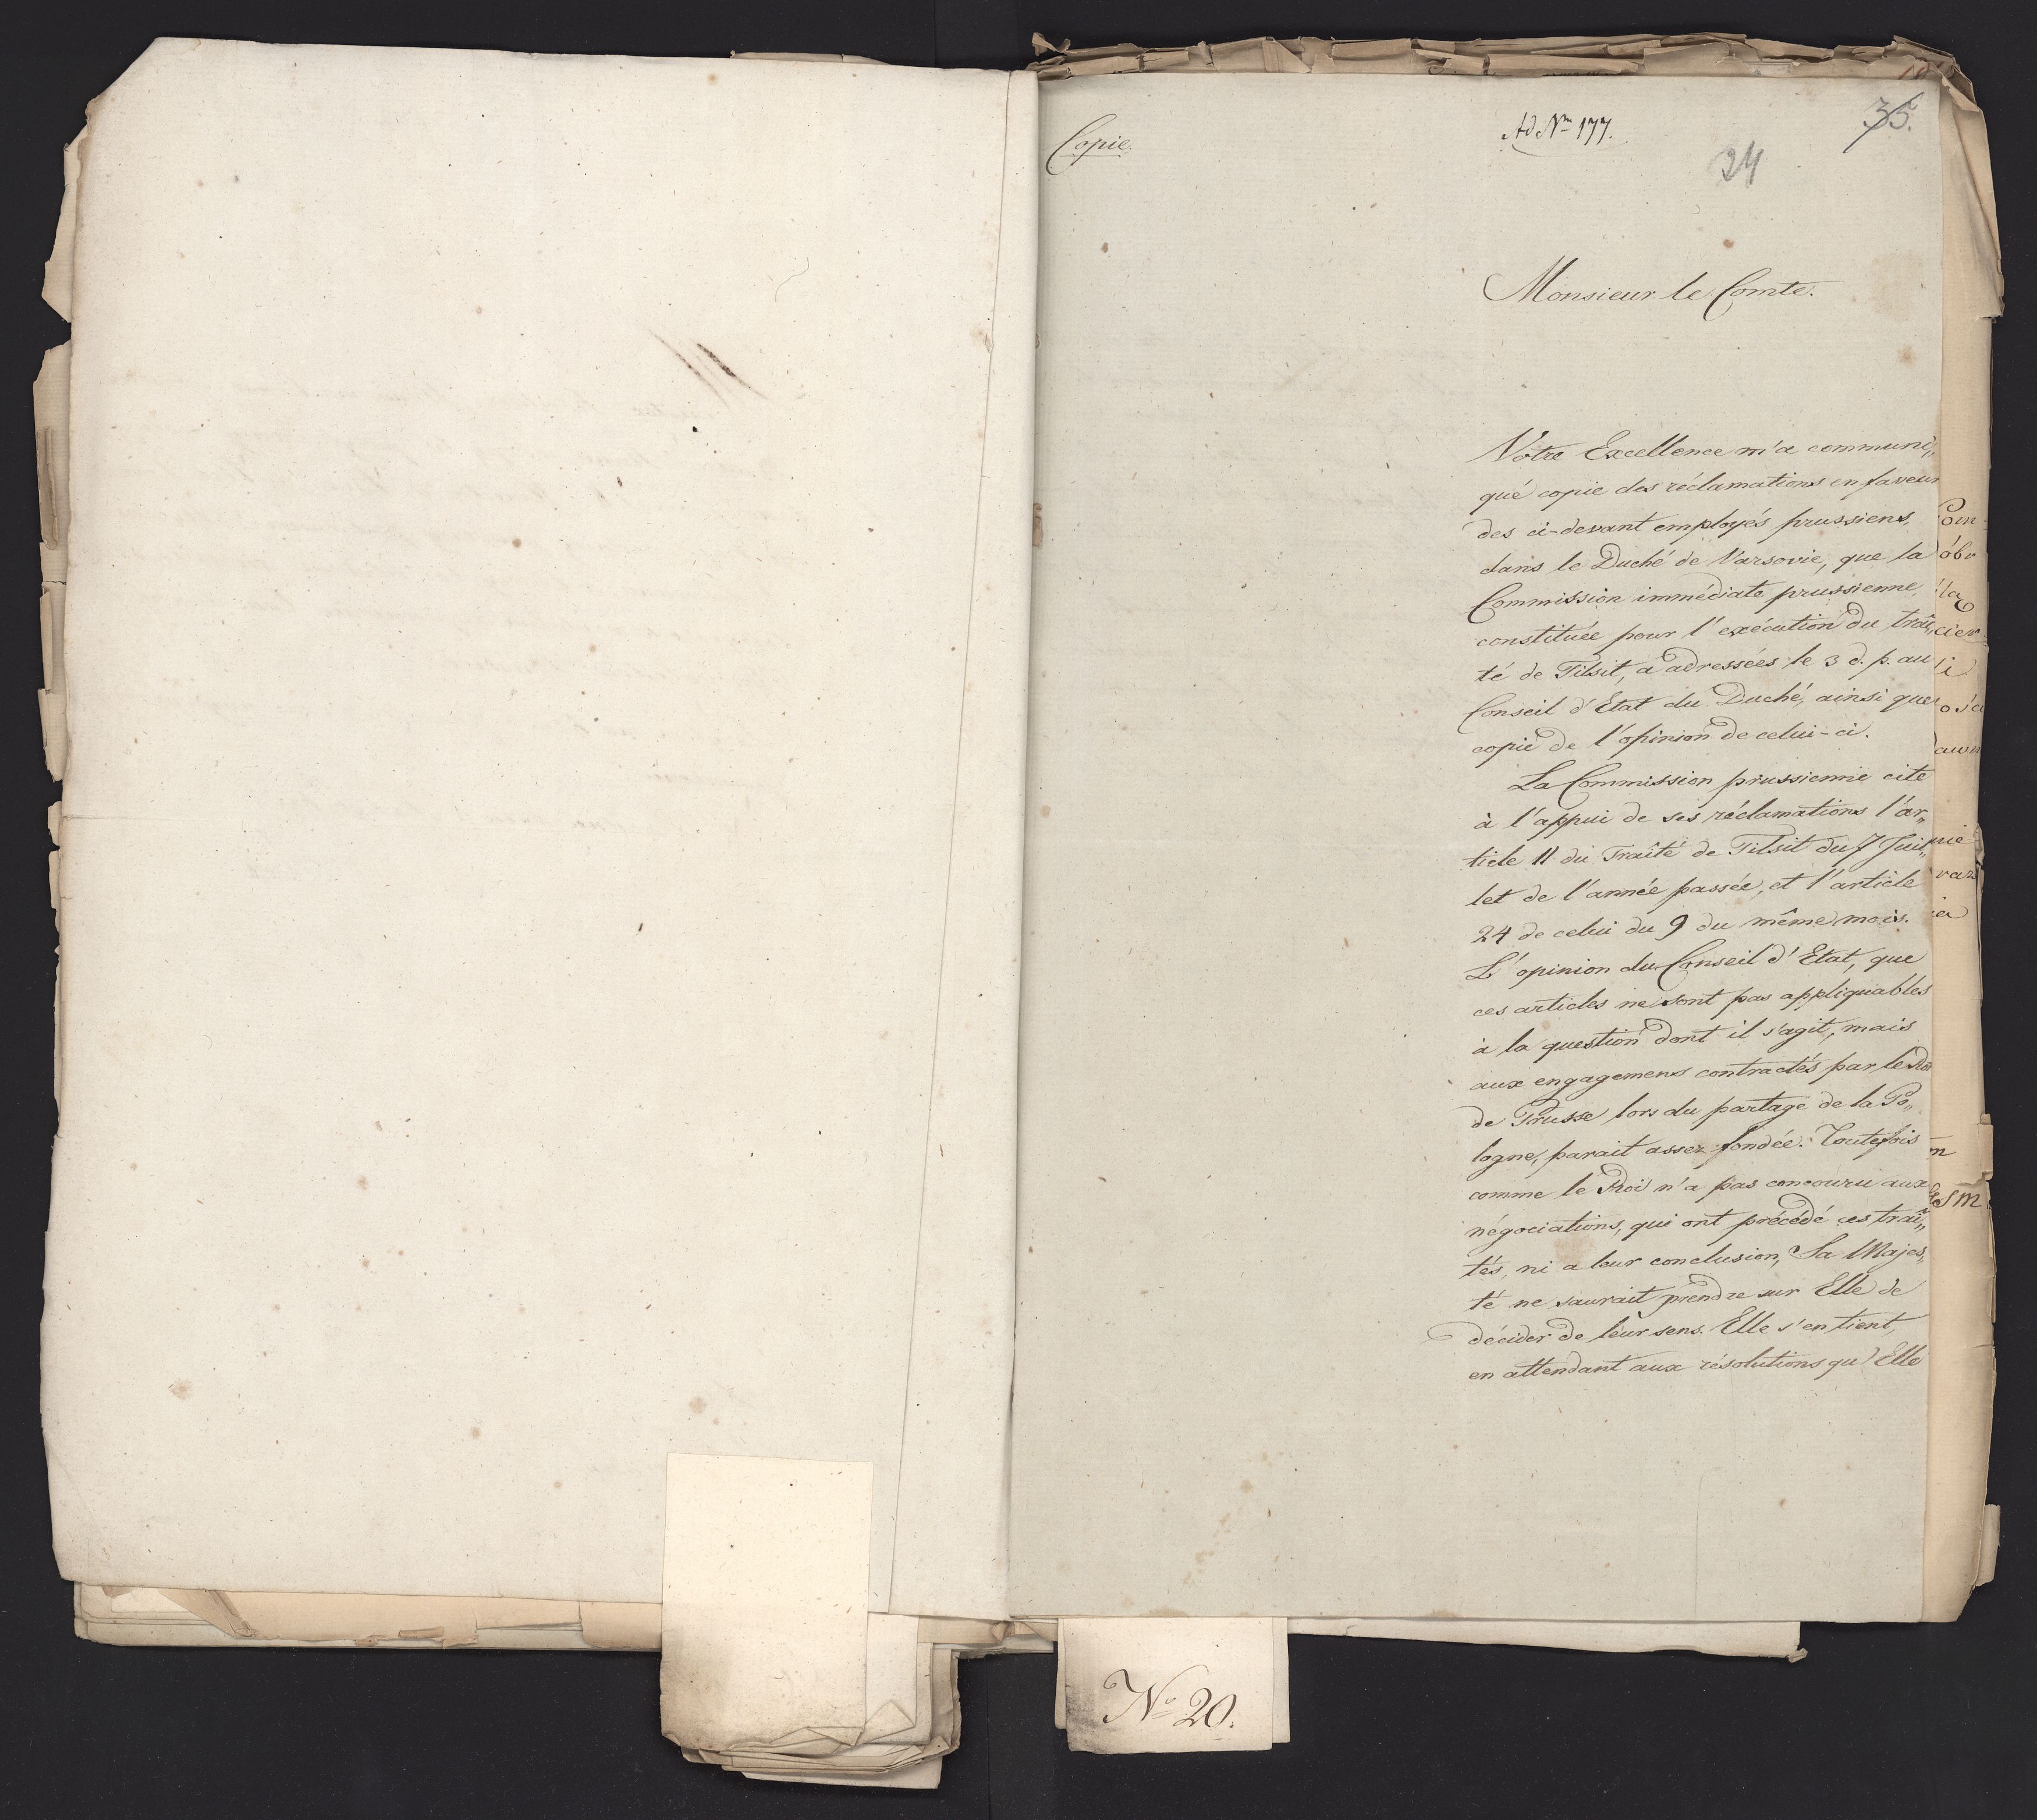 Copie.
Ad Nm 177.
35.
24
Monsieur le Comte.
Votre Excellence m'a communi„
qué copie des réclamations en faveur
des ci-devant employés prussiens,
dans le Duché de Varsovie, que la
Commission immédiate prussienne,
constituée pour l'exécution du trai„
té de Tilsit, a adressées le 3 d. p. au
Conseil d'Etat du Duché, ainsi que
copie de l'opinion de celui-ci.
La Commission prussienne cite
à l'appui de ses réclamations l'ar„
ticle 11 du Traité de Tilsit du 7 Juil„
let de l'année passée, et l'article
24 de celui du 9 du même mois.
L'opinion du Conseil d'Etat, que
ces articles ne sont pas appliquables
à la question dont il s'agit, mais
aux engagemens contractés par le Roi
de Prusse lors du partage de la Po„
logne, parait assez fondée. Toutefois
comme le Roi n'a pas concouru aux
négociations, qui ont précédé ces trai„
tés, ni a leur conclusion, Sa Majes„
té ne saurait prendre sur Elle de
décider de leur sens. Elle s'en tient,
en attendant aux résolutions qu'Elle
No 20.